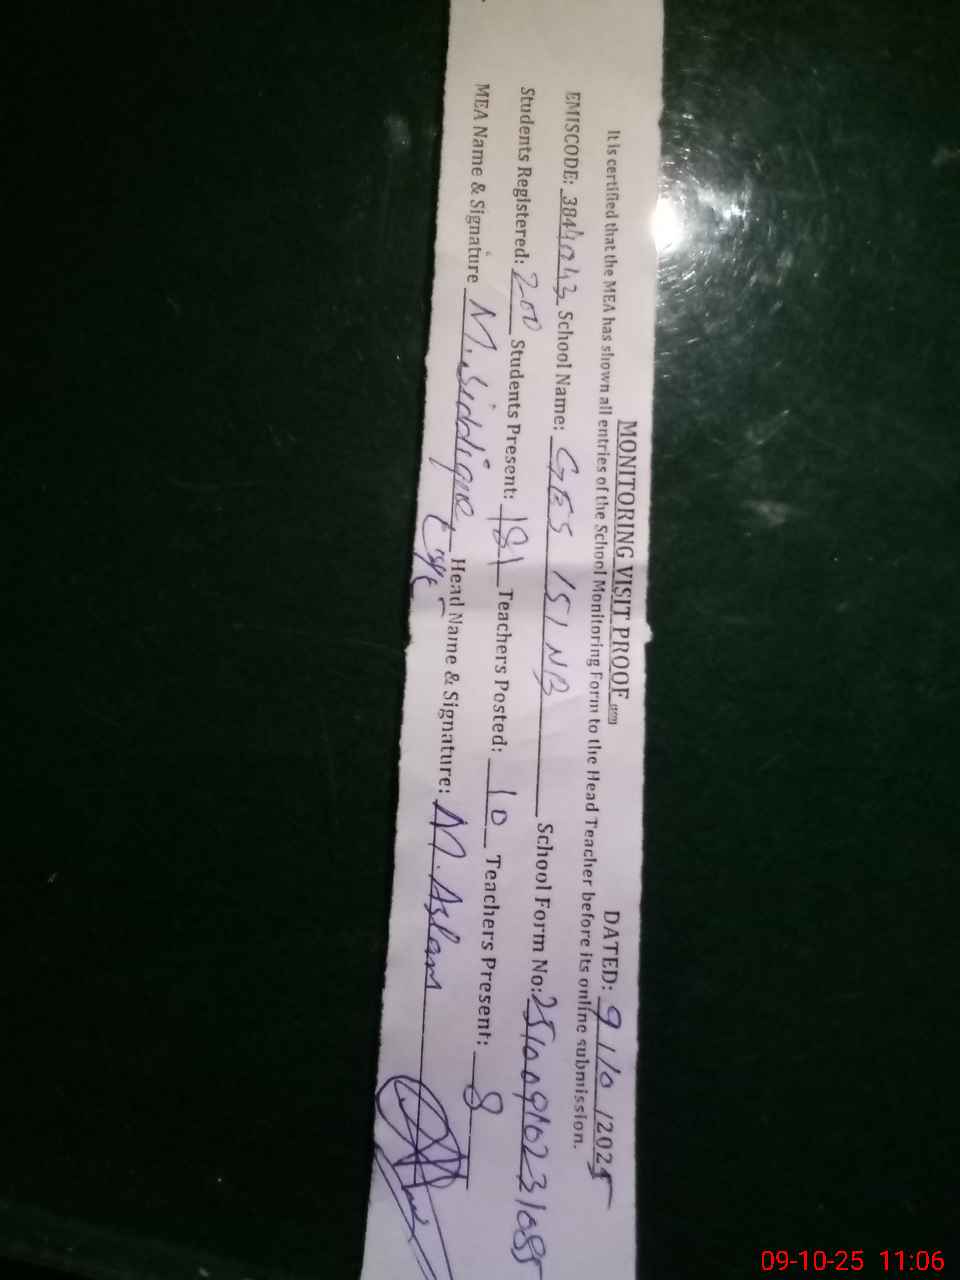 MONITORING VISIT PROOF DATED: 9/10/2025
It is certified that the MEA has shown all entries of the School Monitoring Form to the Head Teacher before its online submission.
EMISCODE: 3841043 School Name: GES 151 NB School Form No: 25100910231085
Students Registered: 200 Students Present: 181 Teachers Posted: 10 Teachers Present: 8
MEA Name & Signature M. Siddique Head Name & Signature: M. Aslam
09-10-25 11:06